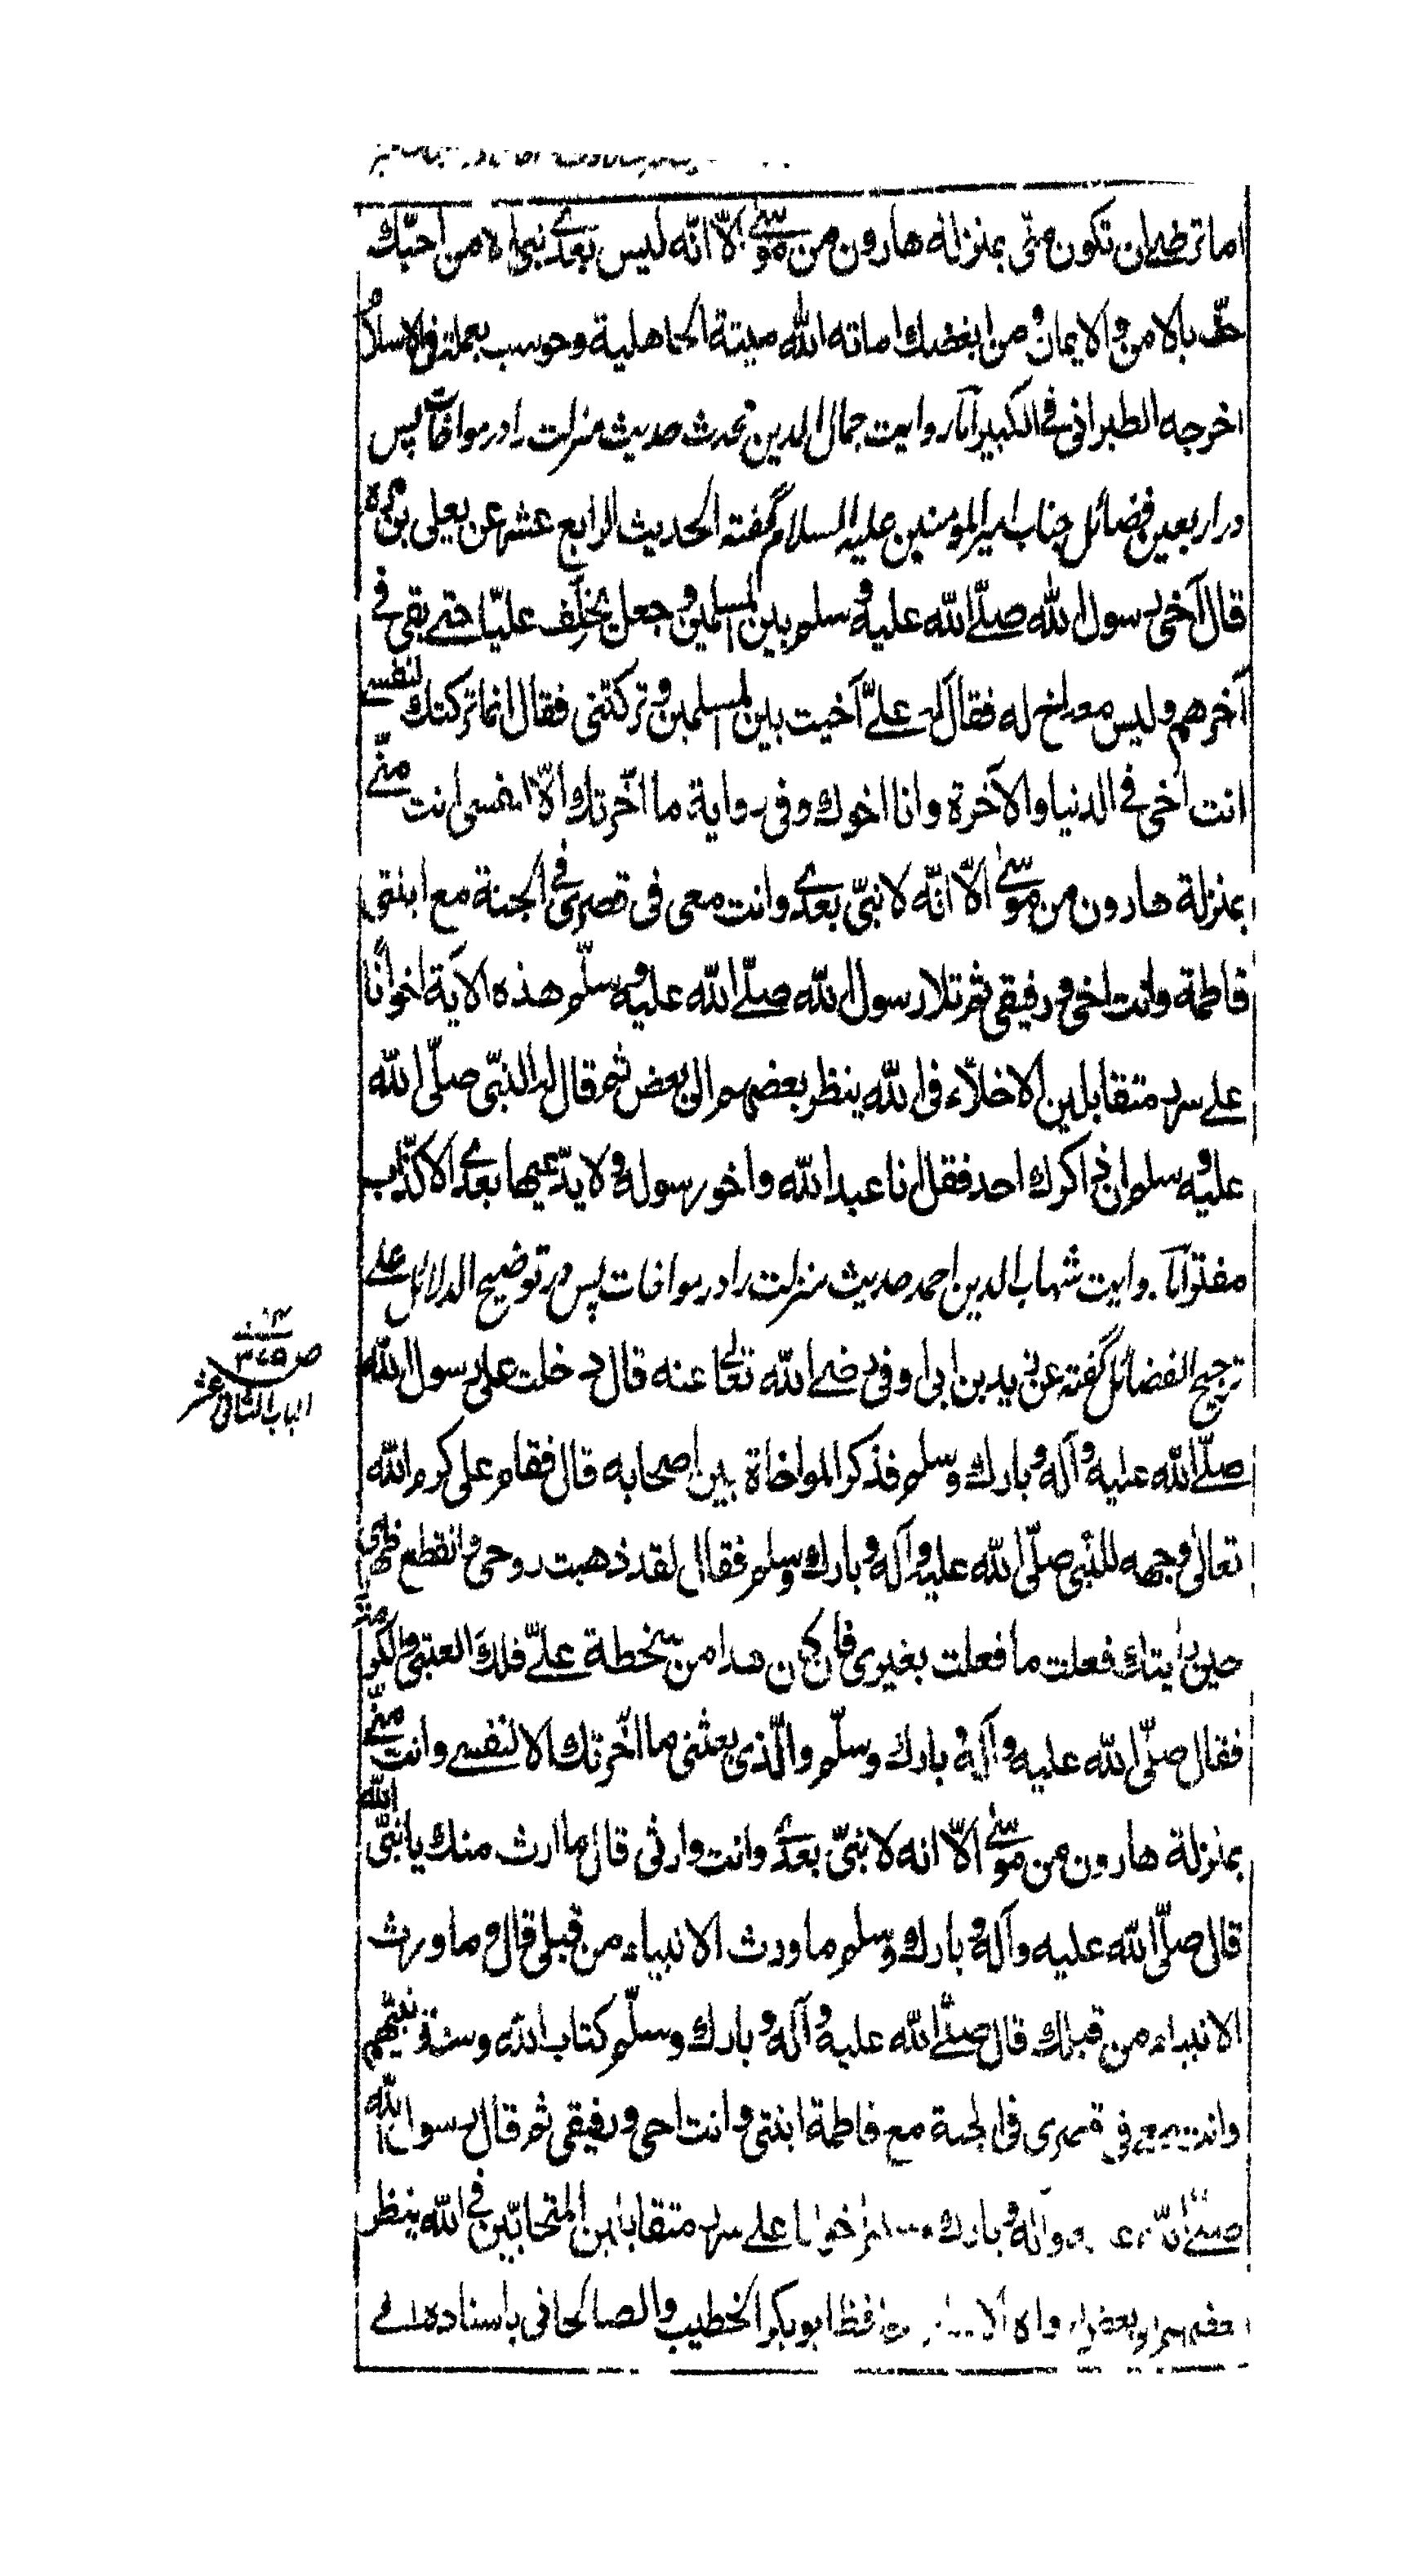 اما ترضى ان تكون منّي بمنزلة هارون من موسى الّا انّه ليس بعدى نبي الا من احبّك
حفّ بالامن والايمان ومن ابغضك اماته الله ميتة الجاهلية وحوسب بعمله في الاسلام
اخرجه الطبراني في الكبير امّا روايت جمال الدين محدث حديث منزلت را در مواخات پس
در اربعين فضائل جناب امير المومنين عليه السلام گفته الحديث الرابع عشر عن يعلى بن مرة
قال آخى رسول الله صلّى الله عليه وسلم بين المسلمين وجعل يخلّف عليّا حتى بقى في
آخرهم وليس معه اخ له فقال له علىّ آخيت بين المسلمين وتركتني فقال انما تركتك لنفسي
انت اخى في الدنيا والآخرة وانا اخوك وفي رواية ما اخّرتك الّا لنفسي انت منّي
بمنزلة هارون من موسى الّا انّه لا نبيّ بعدى وانت معى فى قصرى في الجنة مع ابنتى
فاطمة وانت اخى ورفيقى ثم تلا رسول الله صلّى الله عليه وسلّم هذه الآية اخوانًا
على سرر متقابلين الاخلاّء فى الله ينظر بعضهم الى بعض ثم قال له النبّى صلّى الله
عليه وسلم ان ذاكرك احد فقل انا عبد الله واخو رسوله ولا يدّعيها بعدى الا كذّاب
مفتر امّا روايت شهاب الدين احمد حديث منزلت را در مواخات پس در توضيح الدلائل على
ترجيح الفضائل گفته عن زيد بن ابى اوفى رضى الله تعالى عنه قال دخلت على رسول الله
صلّى الله عليه وآله وبارك وسلم فذكر المواخاة بين اصحابه قال فقام على كرم الله
تعالى وجهه للنبى صلّى الله عليه وآله وبارك وسلم فقال لقد ذهبت روحى وانقطع ظهرى
حين رايتك فعلت ما فعلت بغيرى فان كان هذا من سخطة علىّ فلك العتبى والكرامة
فقال صلّى الله عليه وآله وبارك وسلّم والّذى بعثنى ما اخّرتك الا لنفسى وانت منّى
بمنزلة هارون من موسى الّا انه لا نبىّ بعدى وانت وارثى قال ما ارث منك يا نبىّ الله
قال صلّى الله عليه وآله وبارك وسلم ما ورث الانبياء من قبلى قال وما ورث
الانبياء من قبلك قال صلّى الله عليه وآله وبارك وسلّم كتاب الله وسنة نبيّهم
وانت معى فى قصرى فى الجنة مع فاطمة ابنتى وانت اخى ورفيقى ثم قال رسول الله
صلى الله وآله وبارك وسلم اخوانا على سرر متقابلين المتحابّين في الله ينظر
بعضهم الى بعض رواه الحافظ ابو بكر الخطيب والصالحانى باسناده الى
ص ٣٧٥
الباب الثانى عشر